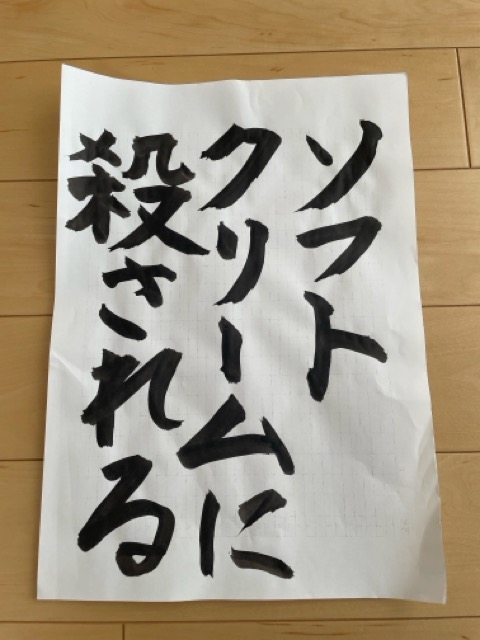 ソフト
クリームに
殺される